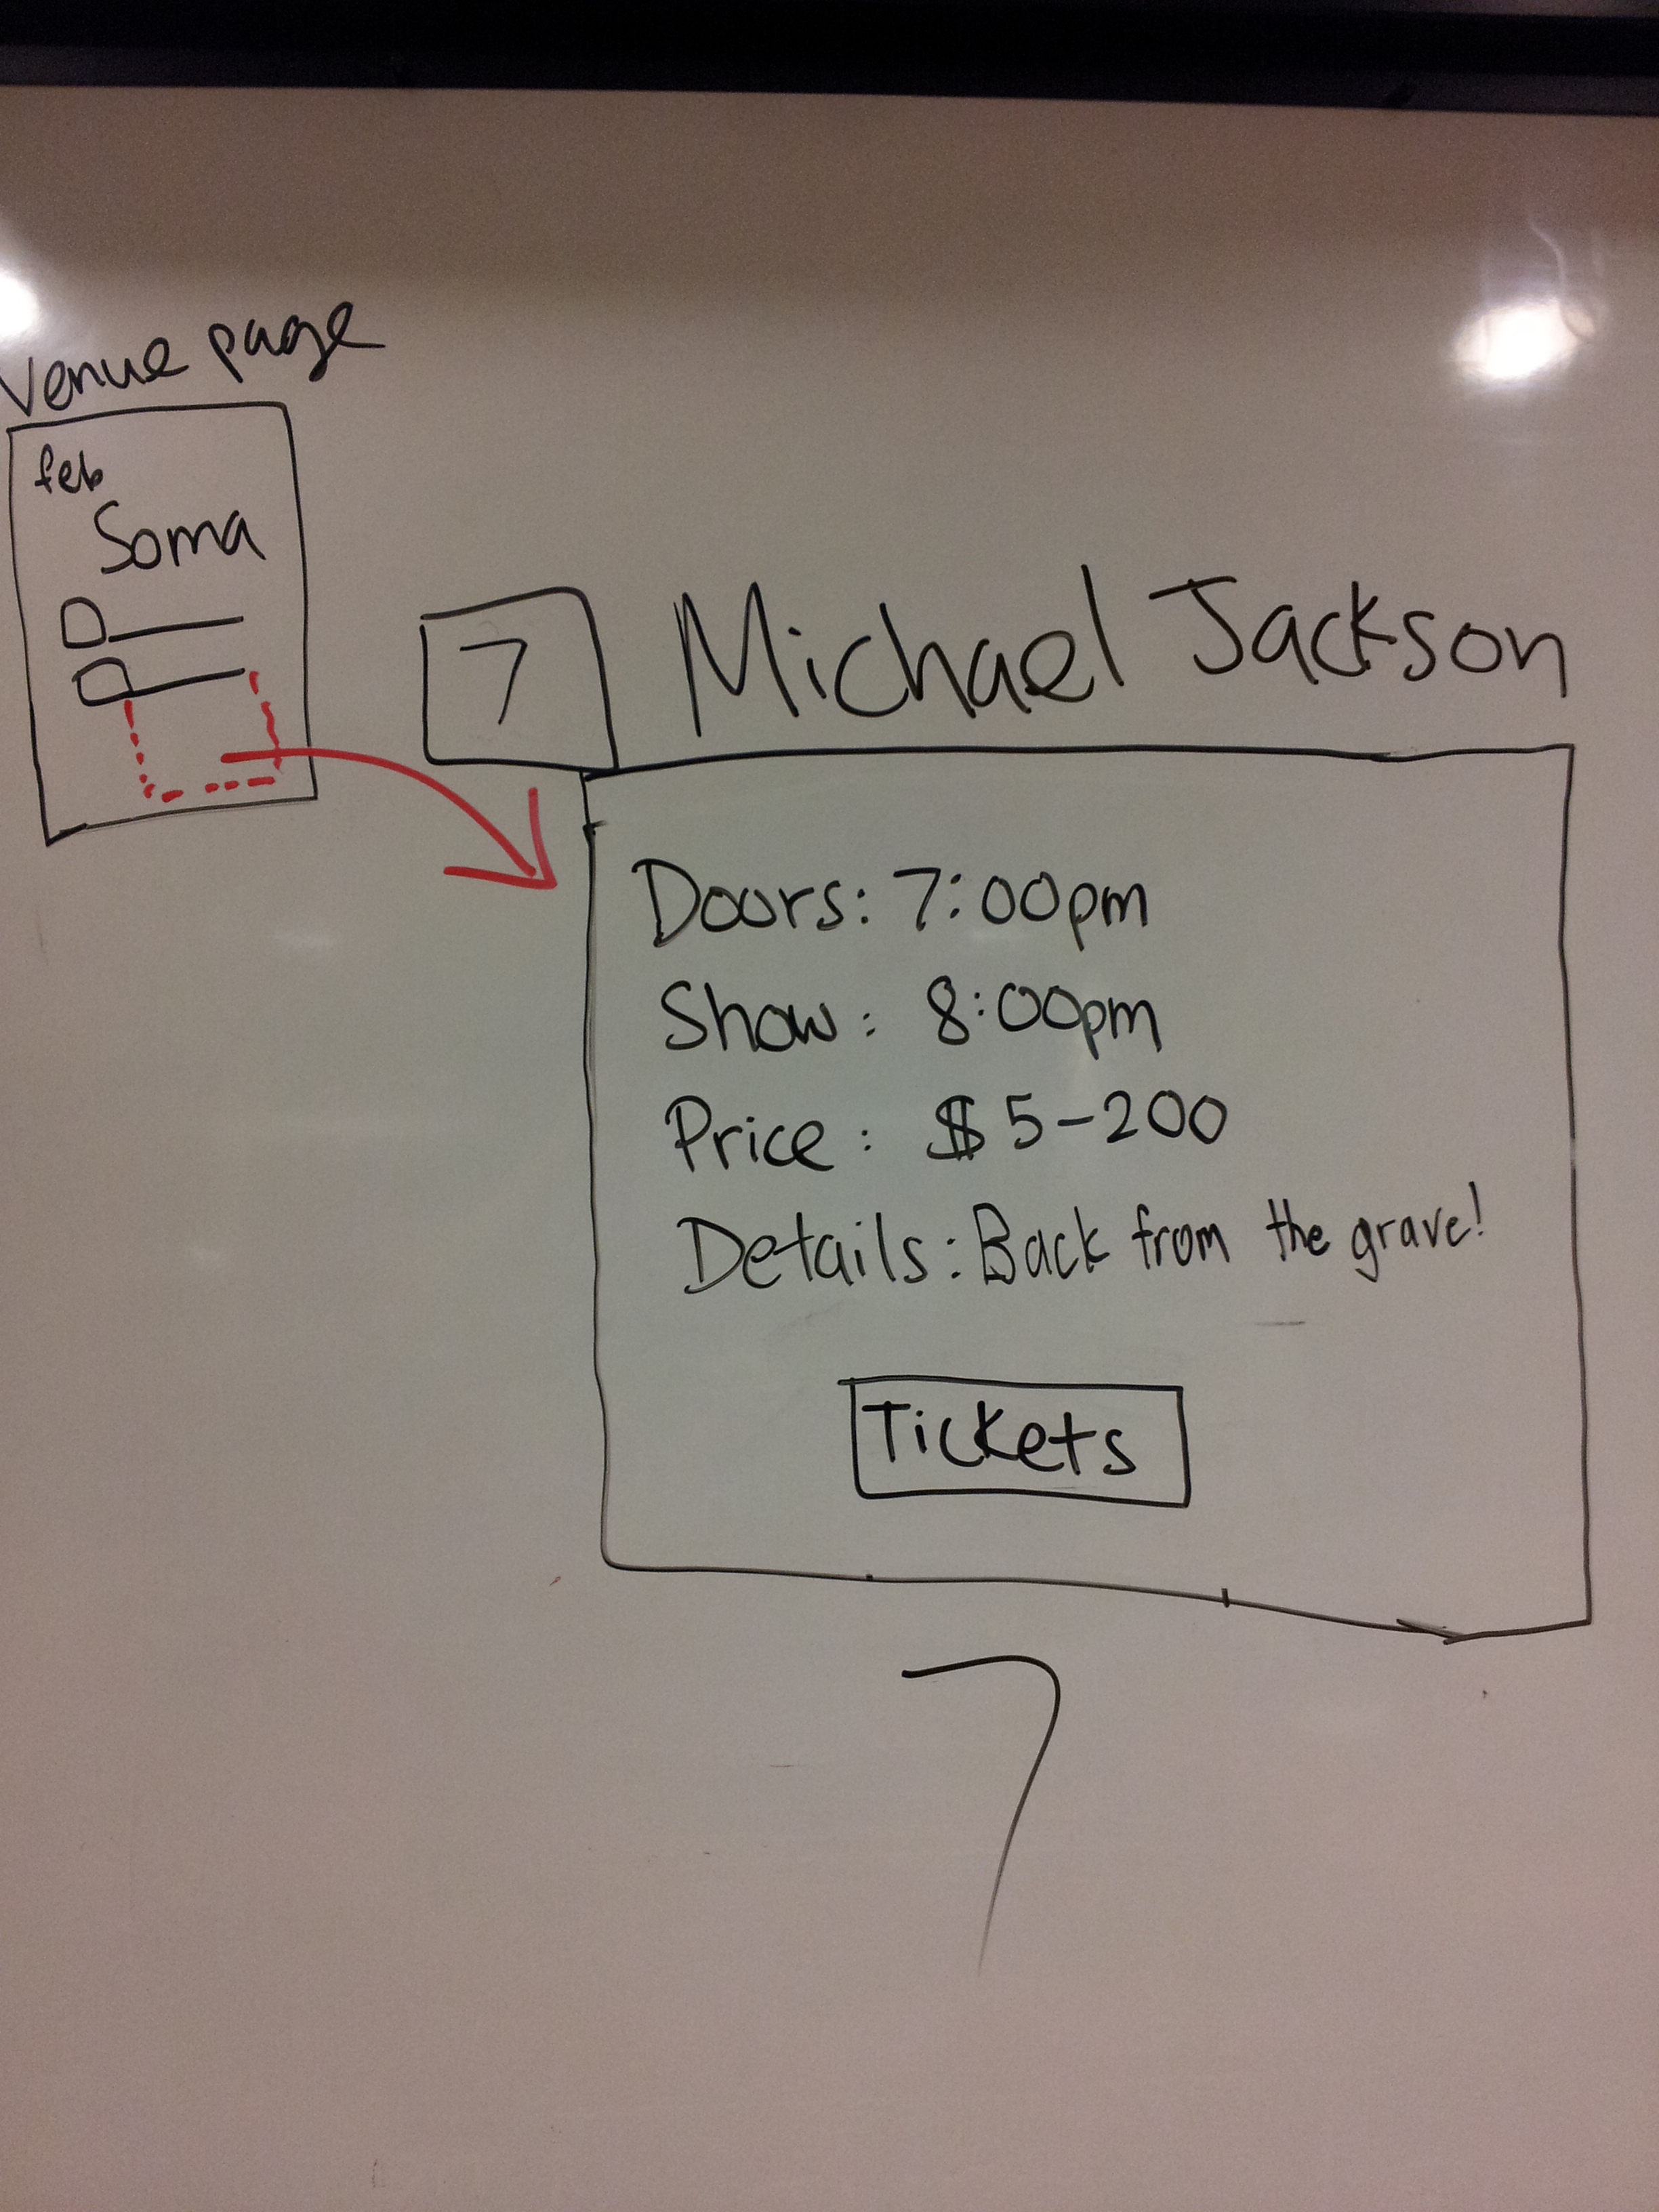 Venue page
feb
Soma
7 Michael Jackson
Doors: 7:00pm
Show: 8:00pm
Price: $5-200
Details: Back from the grave!
Tickets
7